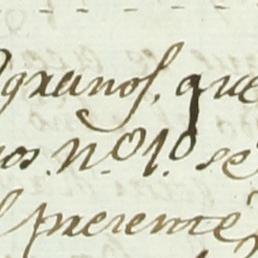 granos, que
os. n.º 1.º se
presente